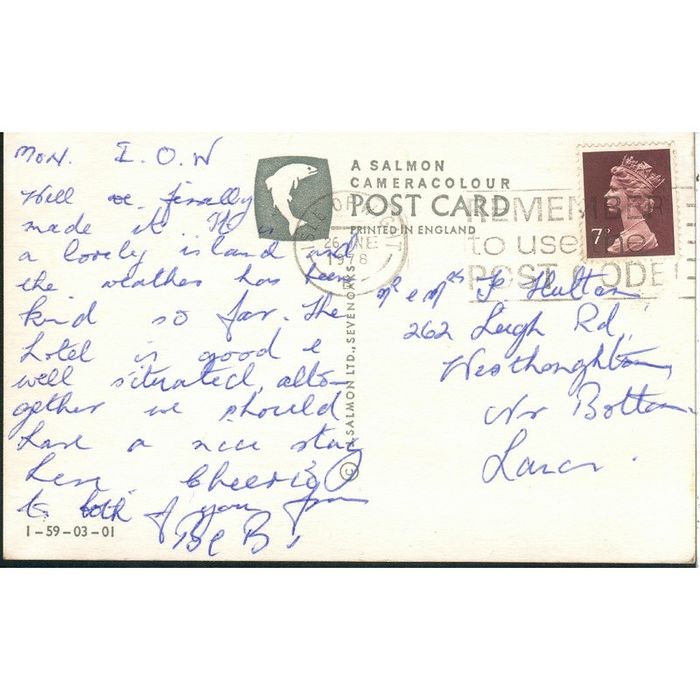 Mon. I.O.W
Well we finally
made it. It is
a lovely island and
the weather has been
kind so far. The
hotel is good &
well situated, alto-
gether we should
have a nice stay
here. Cheerio
to both of you from
B & B
1-59-03-01
A SALMON
CAMERACOLOUR
POST CARD
PRINTED IN ENGLAND
© J SALMON LTD., SEVENOAKS
ISLE OF WIGHT
26 JNE
1978
REMEMBER
to use the
POST CODE
7P
Mr & Mrs F Hulton
262 Leigh Rd,
Westhoughton,
Nr Bolton
Lancs.